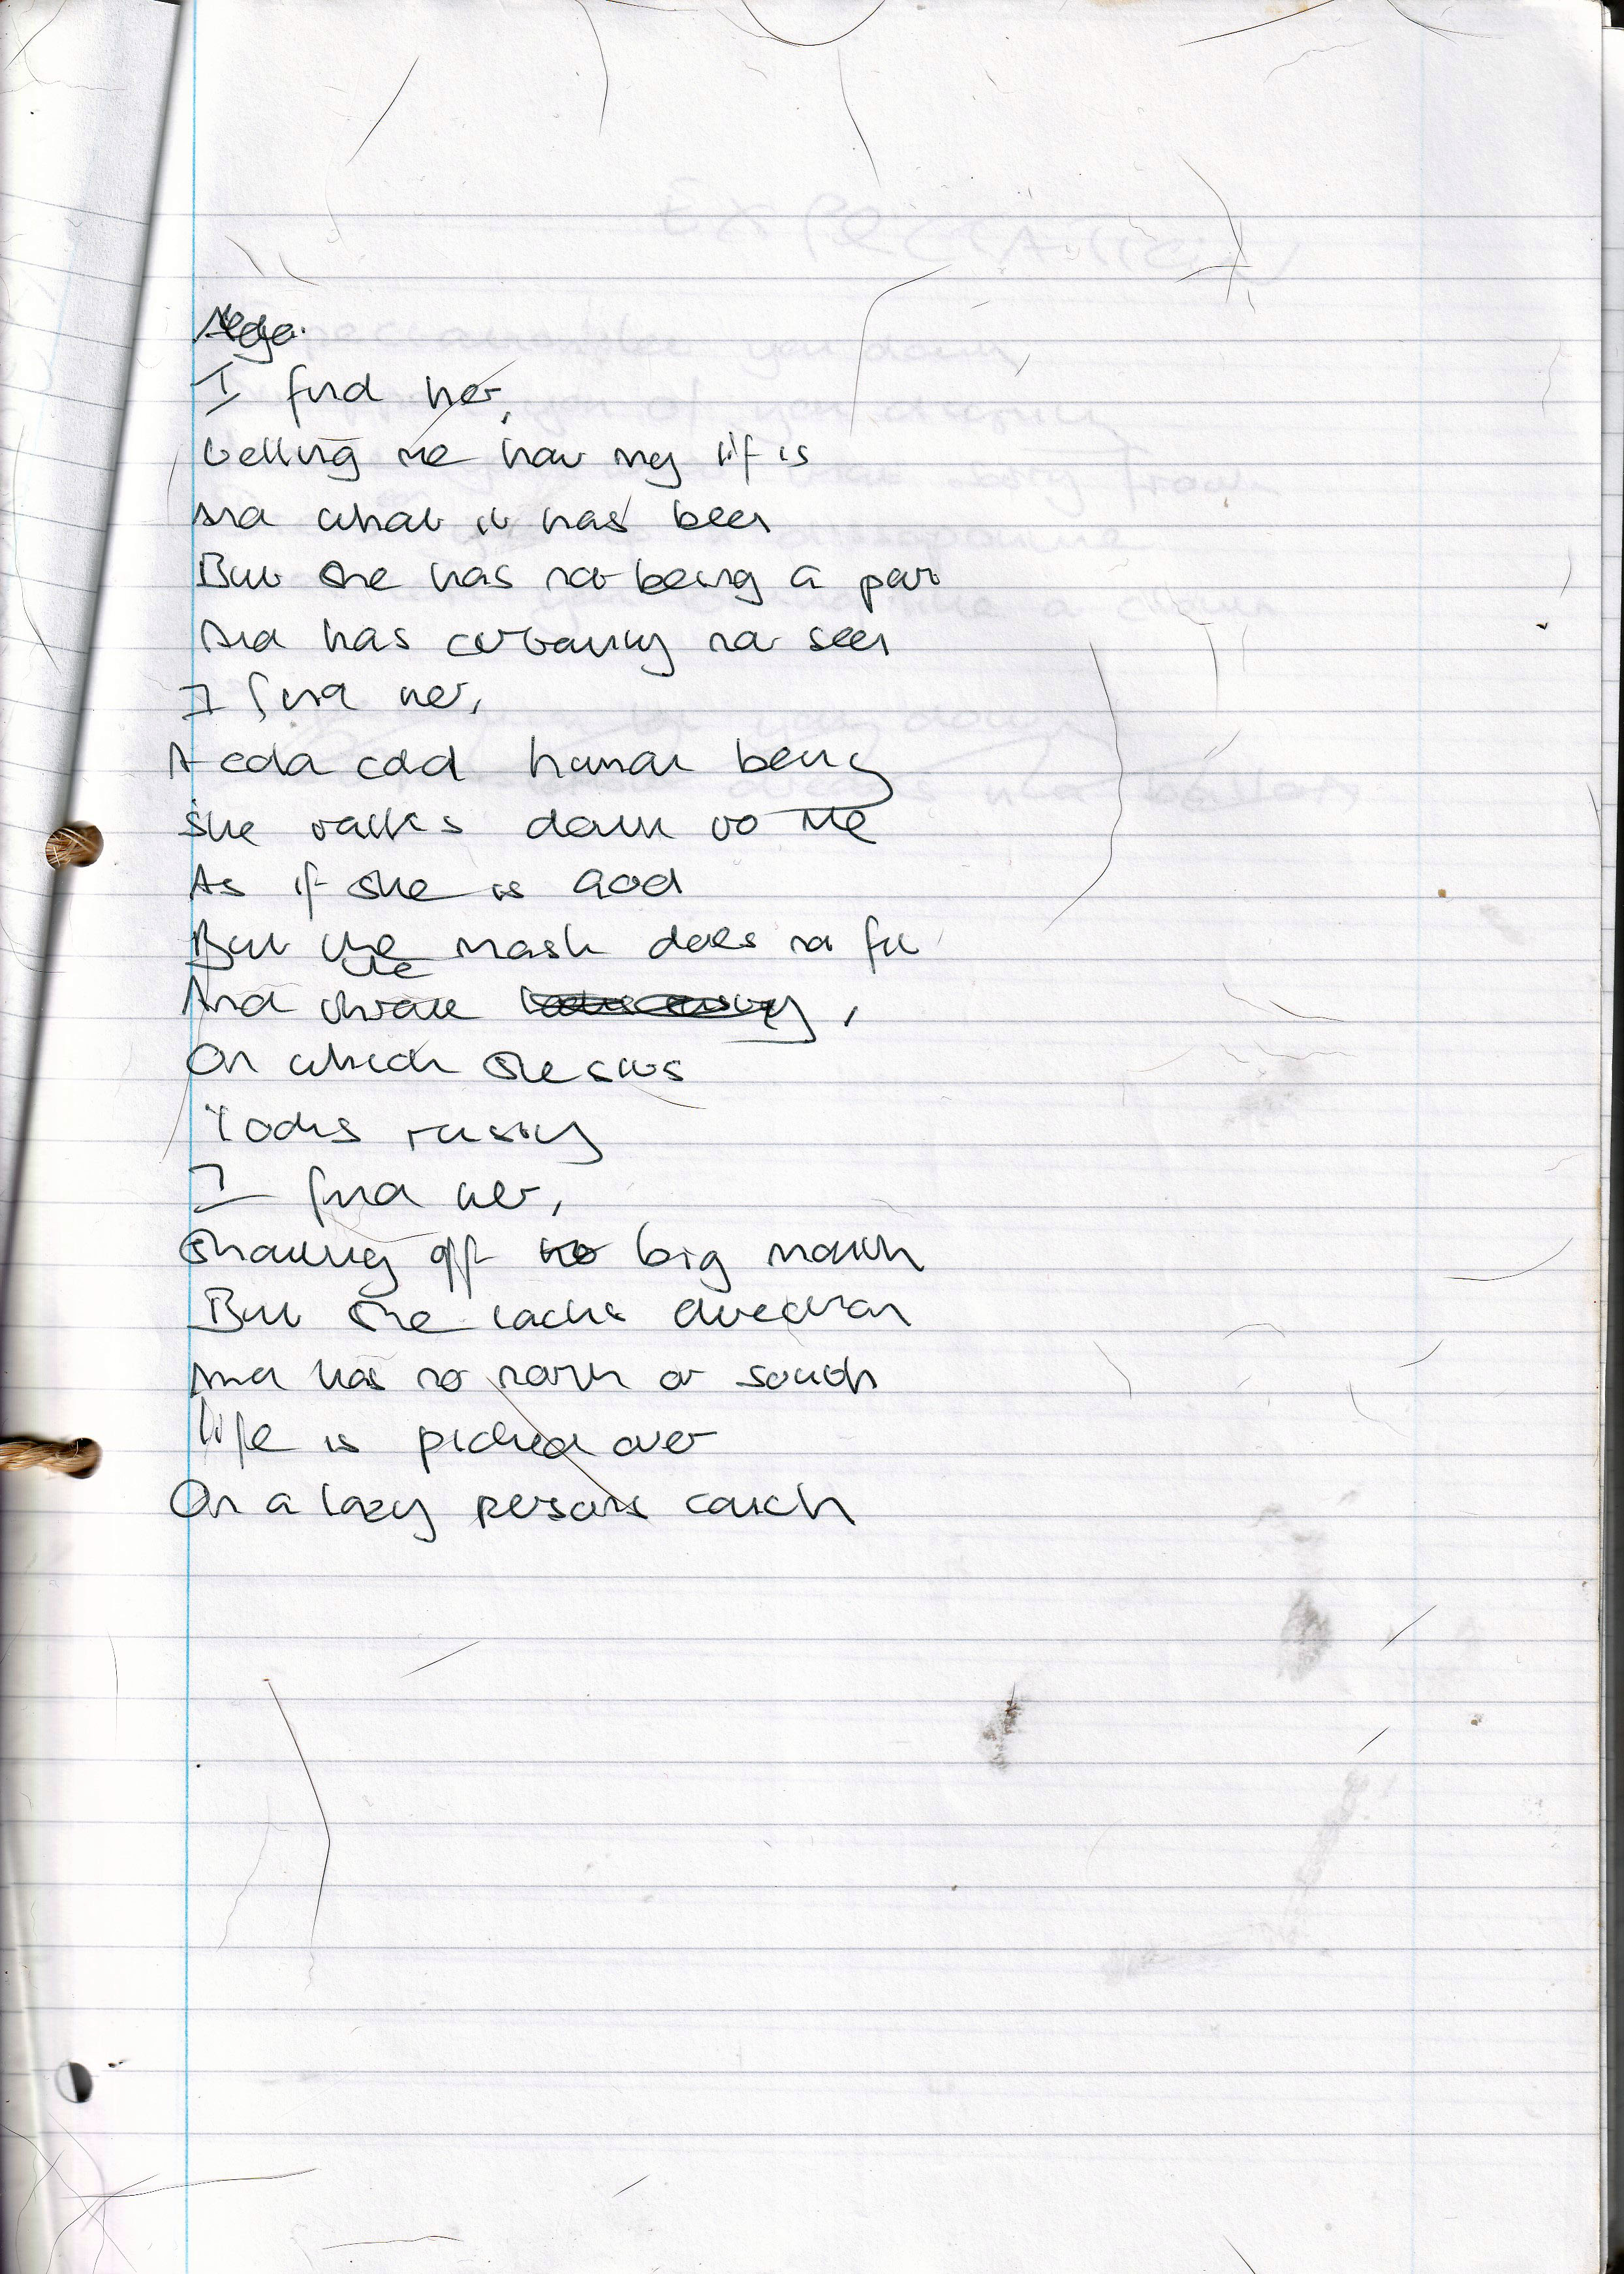 I find her,
telling me how my lif is
And what it has been
But she has not being a part
And has certainly not seen
I find her,
A cold cold human being
She talks down to me
As if she is God
But the mask does not fit
And the throne ,
On which she sits
Looks rusty
I find her,
Showing off big mouth
But she lacks direction
And has no north or south
life is picked over
On a lazy persons couch